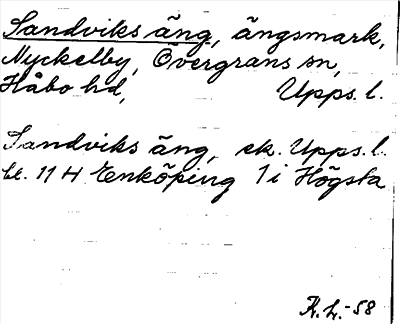 Sandviks äng, ängsmark,
Nyckelby, Övergrans sn,
Håbo hd, Upps. l.
Sandviks äng, ek. Upps. l.
bl. 11 H Enköping 1 i Högsta
R. L. -58